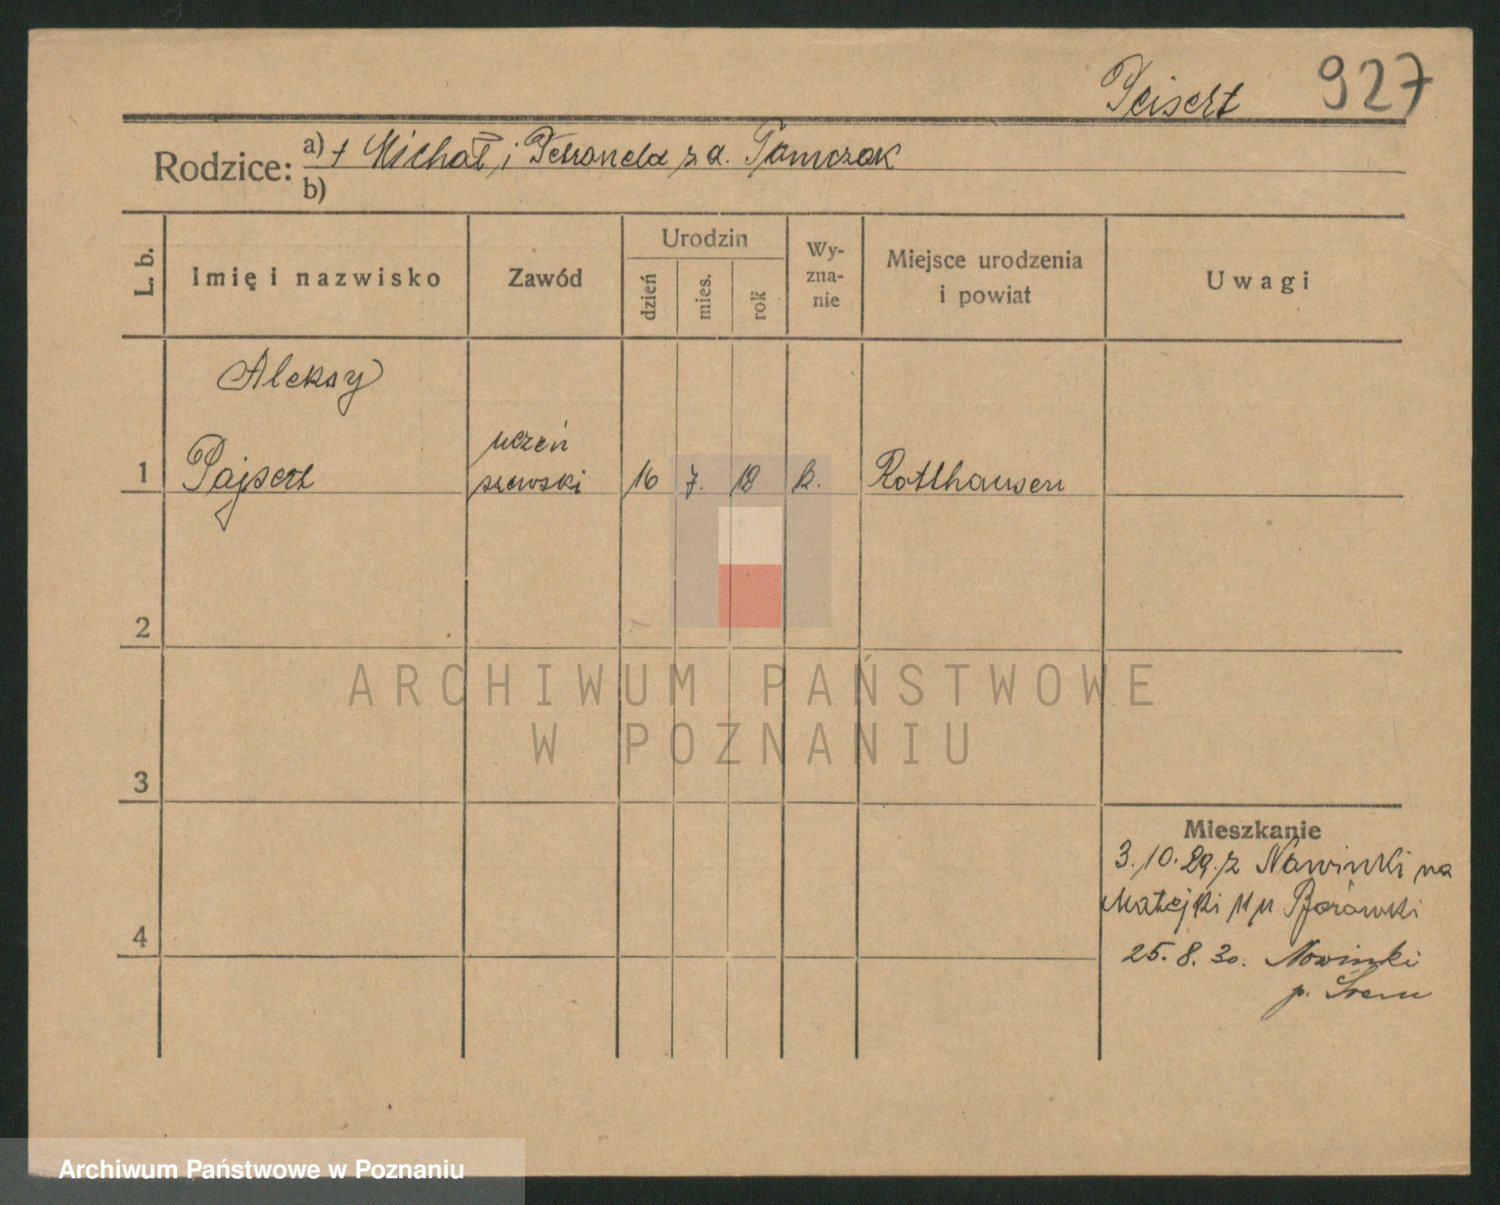 Peisert 927
Rodzice: a) + Michał i Petronela z d. Tomczak
b)
L. b.
Imię i nazwisko
Zawód
Urodzin
dzień
mies.
rok
Wy-
zna-
nie
Miejsce urodzenia
i powiat
Uwagi
Aleksy
uczeń
1 Pajsert szewski 16 7. 12 k. Rotthausen
2
3
4
Mieszkanie
3.10.29. z Nowinki na
Matejki 11 u
25.8.30. Nowinki
p. Śrem
ARCHIWUM PAŃSTWOWE
W POZNANIU
Archiwum Państwowe w Poznaniu